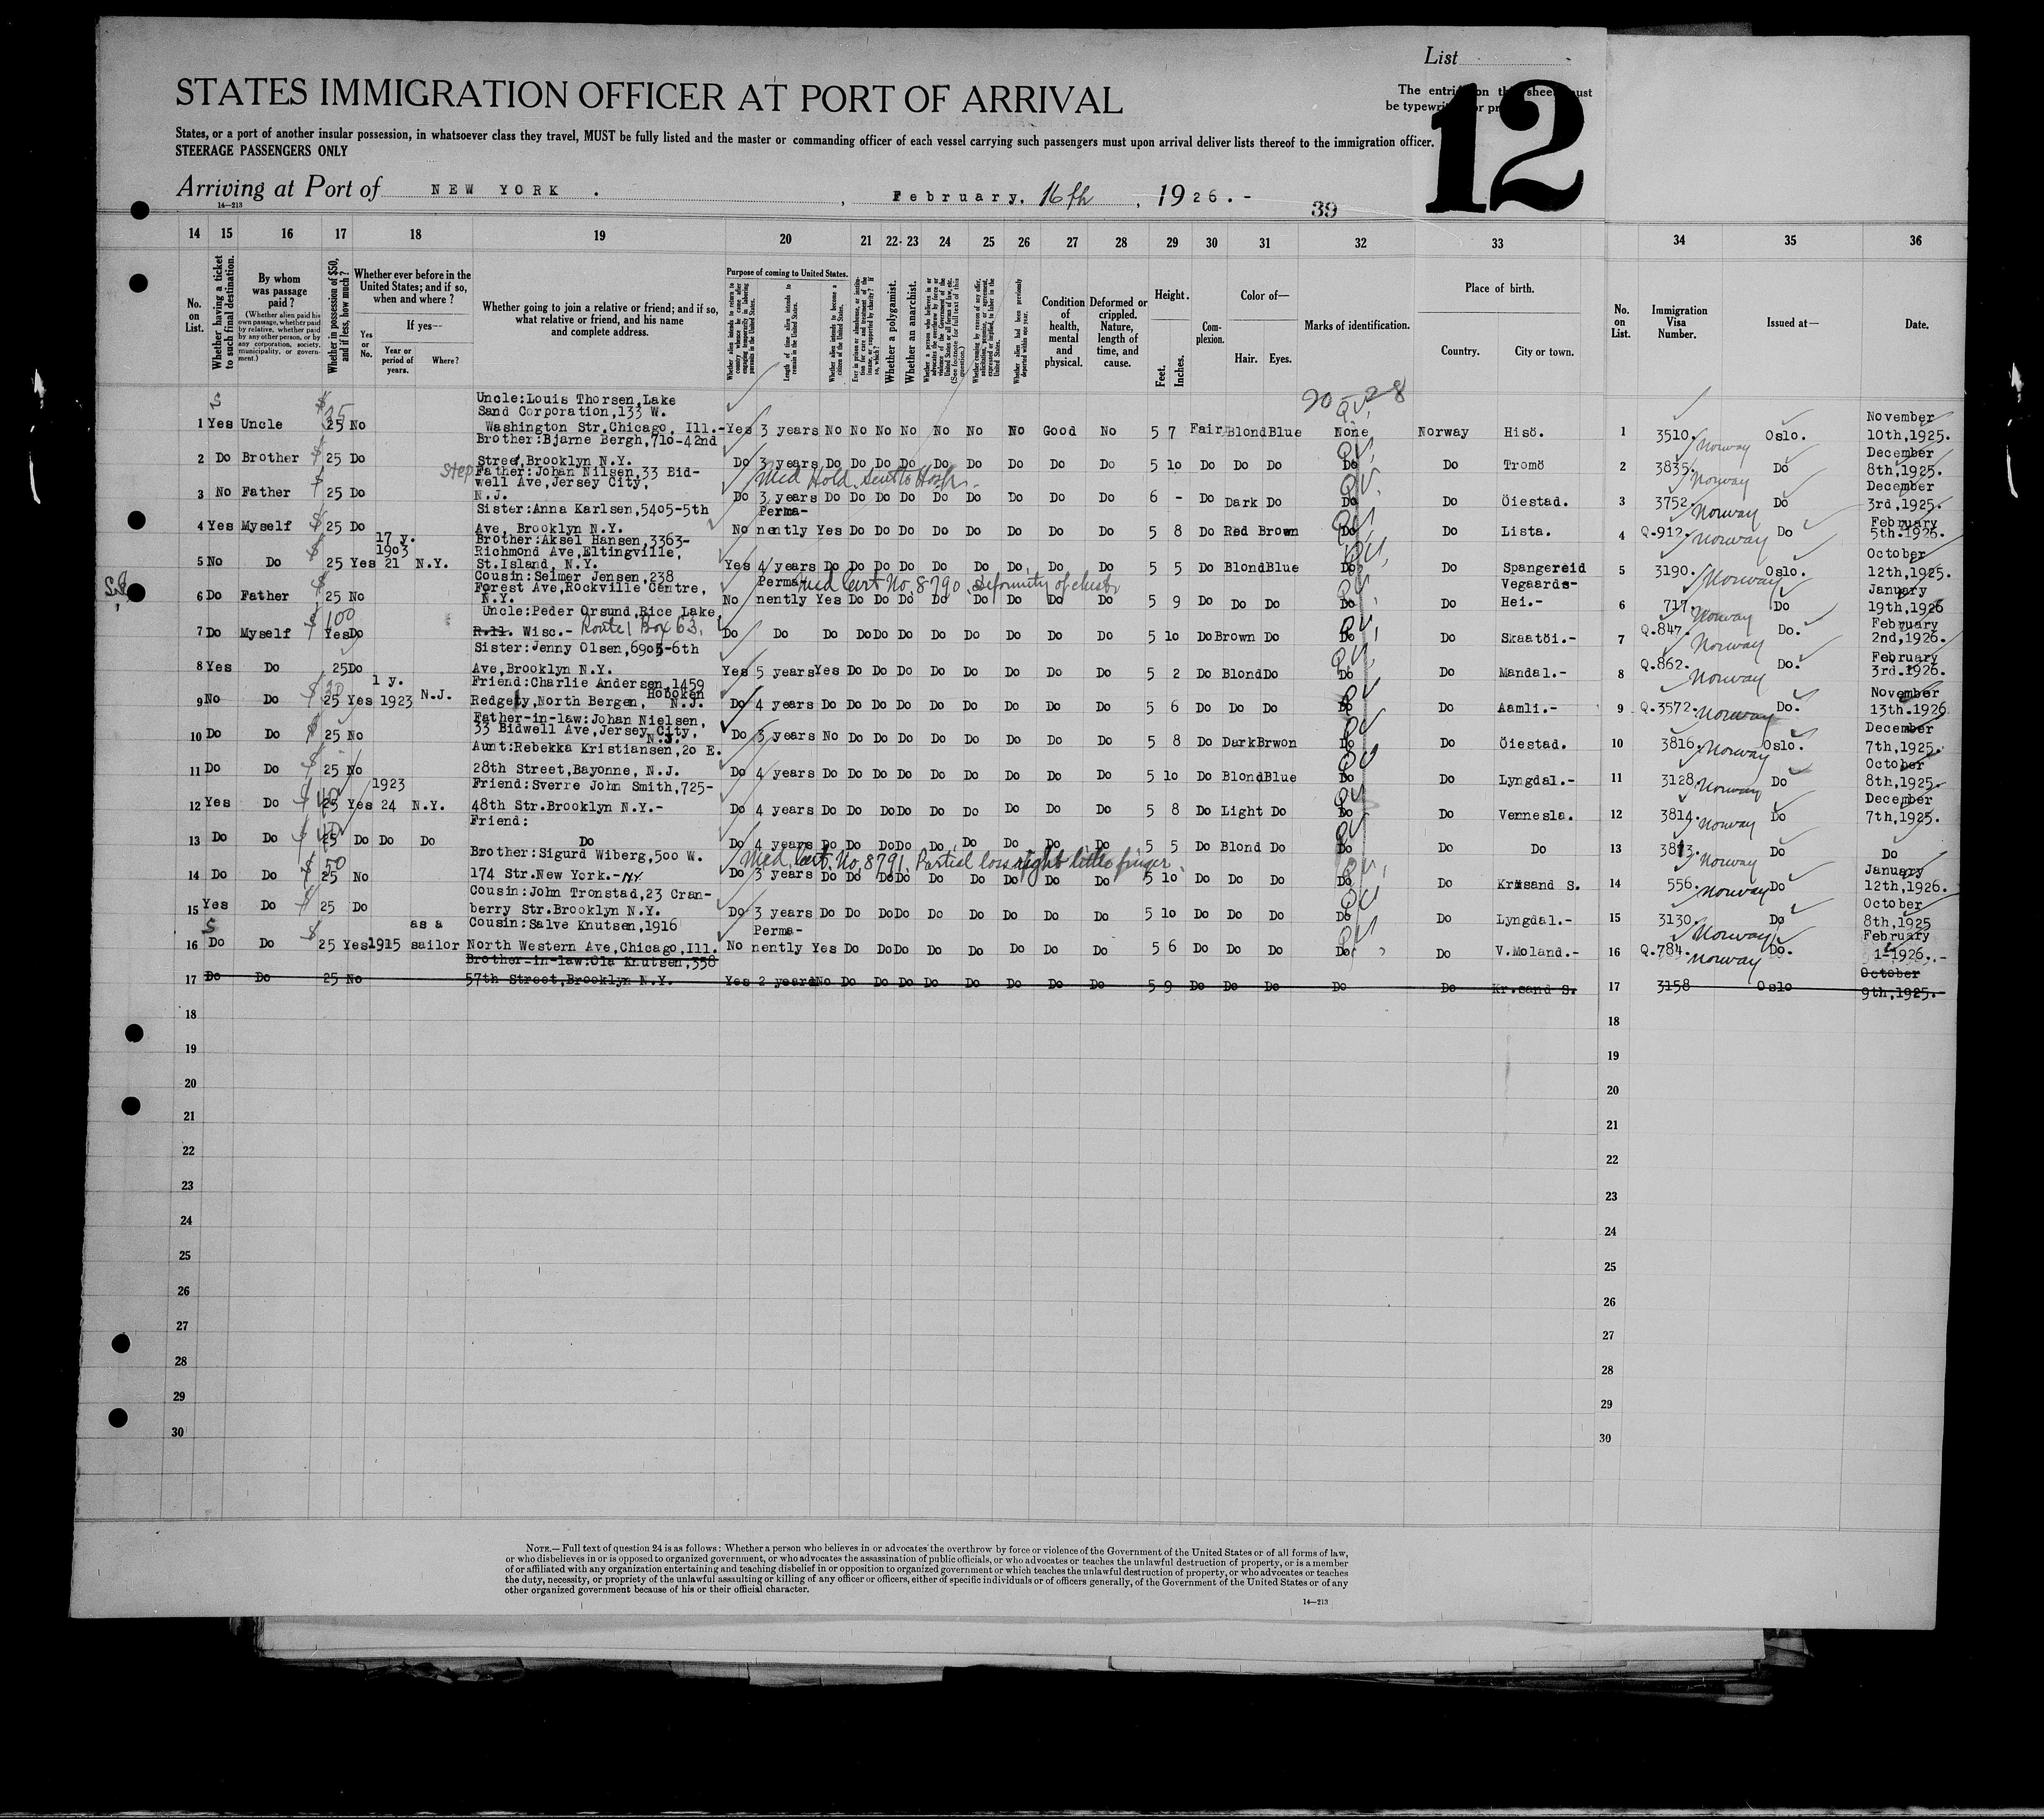 List
12
STATES IMMIGRATION OFFICER AT PORT OF ARRIVAL
The entries on this sheet must
be typewritten or pr
States, or a port of another insular possession, in whatsoever class they travel, MUST be fully listed and the master or commanding officer of each vessel carrying such passengers must upon arrival deliver lists thereof to the immigration officer.
STEERAGE PASSENGERS ONLY
Arriving at Port of NEW YORK . , February, 16th , 1926.-
14—213
39
14 15 16 17 18 19 20 21 22 23 24 25 26 27 28 29 30 31 32 33 34 35 36
No. on List.
Whether having a ticket to such final destination.
By whom was passage paid?
(Whether alien paid his own passage, whether paid by relative, whether paid by any other person, or by any corporation, society, municipality, or government.)
Whether in possession of $50, and if less, how much?
Whether ever before in the United States; and if so, when and where?
Yes or No.
If yes—
Year or period of years.
Where?
Whether going to join a relative or friend; and if so, what relative or friend, and his name and complete address.
Purpose of coming to United States.
Whether alien intends to return to country whence he came after engaging temporarily in laboring pursuits in the United States.
Length of time alien intends to remain in the United States.
Whether alien intends to become a citizen of the United States.
Ever in prison or almshouse, or institution for care and treatment of the insane, or supported by charity? If so, which?
Whether a polygamist.
Whether an anarchist.
Whether a person who believes in or advocates the overthrow by force or violence of the Government of the United States or all forms of law, etc. (See footnote for full text of this question.)
Whether coming by reason of any offer, solicitation, promise, or agreement, expressed or implied, to labor in the United States.
Whether alien had been previously deported within one year.
Condition of health, mental and physical.
Deformed or crippled. Nature, length of time, and cause.
Height.
Feet. Inches.
Complexion.
Color of—
Hair. Eyes.
Marks of identification.
Place of birth.
Country. City or town.
No. on List.
Immigration Visa Number.
Issued at—
Date.
20-28
S $ 35 Uncle:Louis Thorsen,Lake
Sand Corporation,133 W. November
1 Yes Uncle 25 No Washington Str.Chicago, Ill.- Yes 3 years No No No No No No No Good No 5 7 Fair Blond Blue None Norway Hisö. 1 3510. Norway Oslo. 10th,1925.
Brother:Bjarne Bergh,710-42nd December
2 Do Brother $ 25 Do Street,Brooklyn N.Y. Do 3 years Do Do Do Do Do Do Do Do Do 5 10 Do Do Do Do Do Tromö 2 3835. Norway Do 8th,1925.
Step Father:Johan Nilsen,33 Bid-
well Ave,Jersey City, Med Hold sent to Hosp. December
3 No Father $ 25 Do N.J. Do 3 years Do Do Do Do Do Do Do Do Do 6 - Do Dark Do Do Do Öiestad. 3 3752. Norway Do 3rd,1925.
Sister:Anna Karlsen,5405-5th Perma- February
4 Yes Myself $ 25 Do Ave, Brooklyn N.Y. No nently Yes Do Do Do Do Do Do Do Do 5 8 Do Red Brown Do Do Lista. 4 Q-912. Norway Do 5th.1926.
17 y. Brother:Aksel Hansen,3363-
1903 Richmond Ave,Eltingville, October
5 No Do 25 Yes 21 N.Y. St.Island, N.Y. Yes 4 years Do Do Do Do Do Do Do Do Do 5 5 Do Blond Blue Do Do Spangereid 5 3190. Norway Oslo. 12th,1925.
Cousin:Selmer Jensen,238 Perma- Med Cert No 8790. Deformity of chest
Forest Ave,Rockville Centre, Vegaards- January
6 Do Father $ 25 No N.Y. No nently Yes Do Do Do Do Do Do Do Do 5 9 Do Do Do Do Do Hei.- 6 717. Norway Do 19th,1926
$ 100 Uncle:Peder Orsund,Rice Lake, February
7 Do Myself Yes Do R.11. Wisc.- Route 1 Box 63. Do Do Do Do Do Do Do Do Do Do Do 5 10 Do Brown Do Do Do Skaatöi.- 7 Q.847. Norway Do. 2nd,1926.
Sister:Jenny Olsen,6905-6th February
8 Yes Do 25 Do Ave,Brooklyn N.Y. Yes 5 years Yes Do Do Do Do Do Do Do Do 5 2 Do Blond Do Do Do Mandal.- 8 Q.862. Norway Do. 3rd.1926.
1 y. Friend:Charlie Andersen,1459 Hoboken November
9 No Do 25 Yes 1923 N.J. Redgety,North Bergen, N.J. Do 4 years Do Do Do Do Do Do Do Do Do 5 6 Do Do Do Do Do Aamli.- 9 Q.3572. Norway Do. 13th.1926
Father-in-law:Johan Nielsen, December
10 Do Do $ 25 No 33 Bidwell Ave,Jersey City, N.J. Do 3 years No Do Do Do Do Do Do Do Do 5 8 Do Dark Brwon Do Do Öiestad. 10 3816. Norway Oslo. 7th,1925.
Aunt:Rebekka Kristiansen,20 E. October
11 Do Do $ 25 No 28th Street,Bayonne, N.J. Do 4 years Do Do Do Do Do Do Do Do Do 5 10 Do Blond Blue Do Do Lyngdal.- 11 3128. Norway Do 8th,1925.
1923 Friend:Sverre John Smith,725- December
12 Yes Do $ 40 25 Yes 24 N.Y. 48th Str.Brooklyn N.Y.- Do 4 years Do Do Do Do Do Do Do Do Do 5 8 Do Light Do Do Do Vennesla. 12 3814. Norway Do 7th,1925.
Friend:
13 Do Do $ 40 25 Do Do Do Do Do 4 years Do Do Do Do Do Do Do Do Do 5 5 Do Blond Do Do Do Do 13 3813. Norway Do Do
$ 50 Brother:Sigurd Wiberg,500 W. Med Cert. No. 8791. Partial loss right little finger. January
14 Do Do 25 No 174 Str.New York.- NY Do 3 years Do Do Do Do Do Do Do Do Do 5 10 Do Do Do Do Do Kr.sand S. 14 556. Norway Do 12th,1926.
Cousin:John Tronstad,23 Cran- October
15 Yes Do $ 25 Do berry Str.Brooklyn N.Y. Do 3 years Do Do Do Do Do Do Do Do Do 5 10 Do Do Do Do Do Lyngdal.- 15 3130. Norway Do 8th,1925
S as a Cousin:Salve Knutsen,1916 Perma- February
16 Do Do $ 25 Yes 1915 sailor North Western Ave,Chicago,Ill. No nently Yes Do Do Do Do Do Do Do Do 5 6 Do Do Do Do Do V.Moland.- 16 Q.784. Norway Do. 1-1926.-
Brother-in-law:Ola Knutsen,358 October
17 Do Do 25 No 57th Street,Brooklyn N.Y. Yes 2 years No Do Do Do Do Do Do Do Do 5 9 Do Do Do Do Do Kr.sand S. 17 3158 Oslo 9th,1925.-
18 18
19 19
20 20
21 21
22 22
23 23
24 24
25 25
26 26
27 27
28 28
29 29
30 30
NOTE.—Full text of question 24 is as follows: Whether a person who believes in or advocates the overthrow by force or violence of the Government of the United States or of all forms of law,
or who disbelieves in or is opposed to organized government, or who advocates the assassination of public officials, or who advocates or teaches the unlawful destruction of property, or is a member
of or affiliated with any organization entertaining and teaching disbelief in or opposition to organized government or which teaches the unlawful destruction of property, or who advocates or teaches
the duty, necessity, or propriety of the unlawful assaulting or killing of any officer or officers, either of specific individuals or of officers generally, of the Government of the United States or of any
other organized government because of his or their official character.
14—213